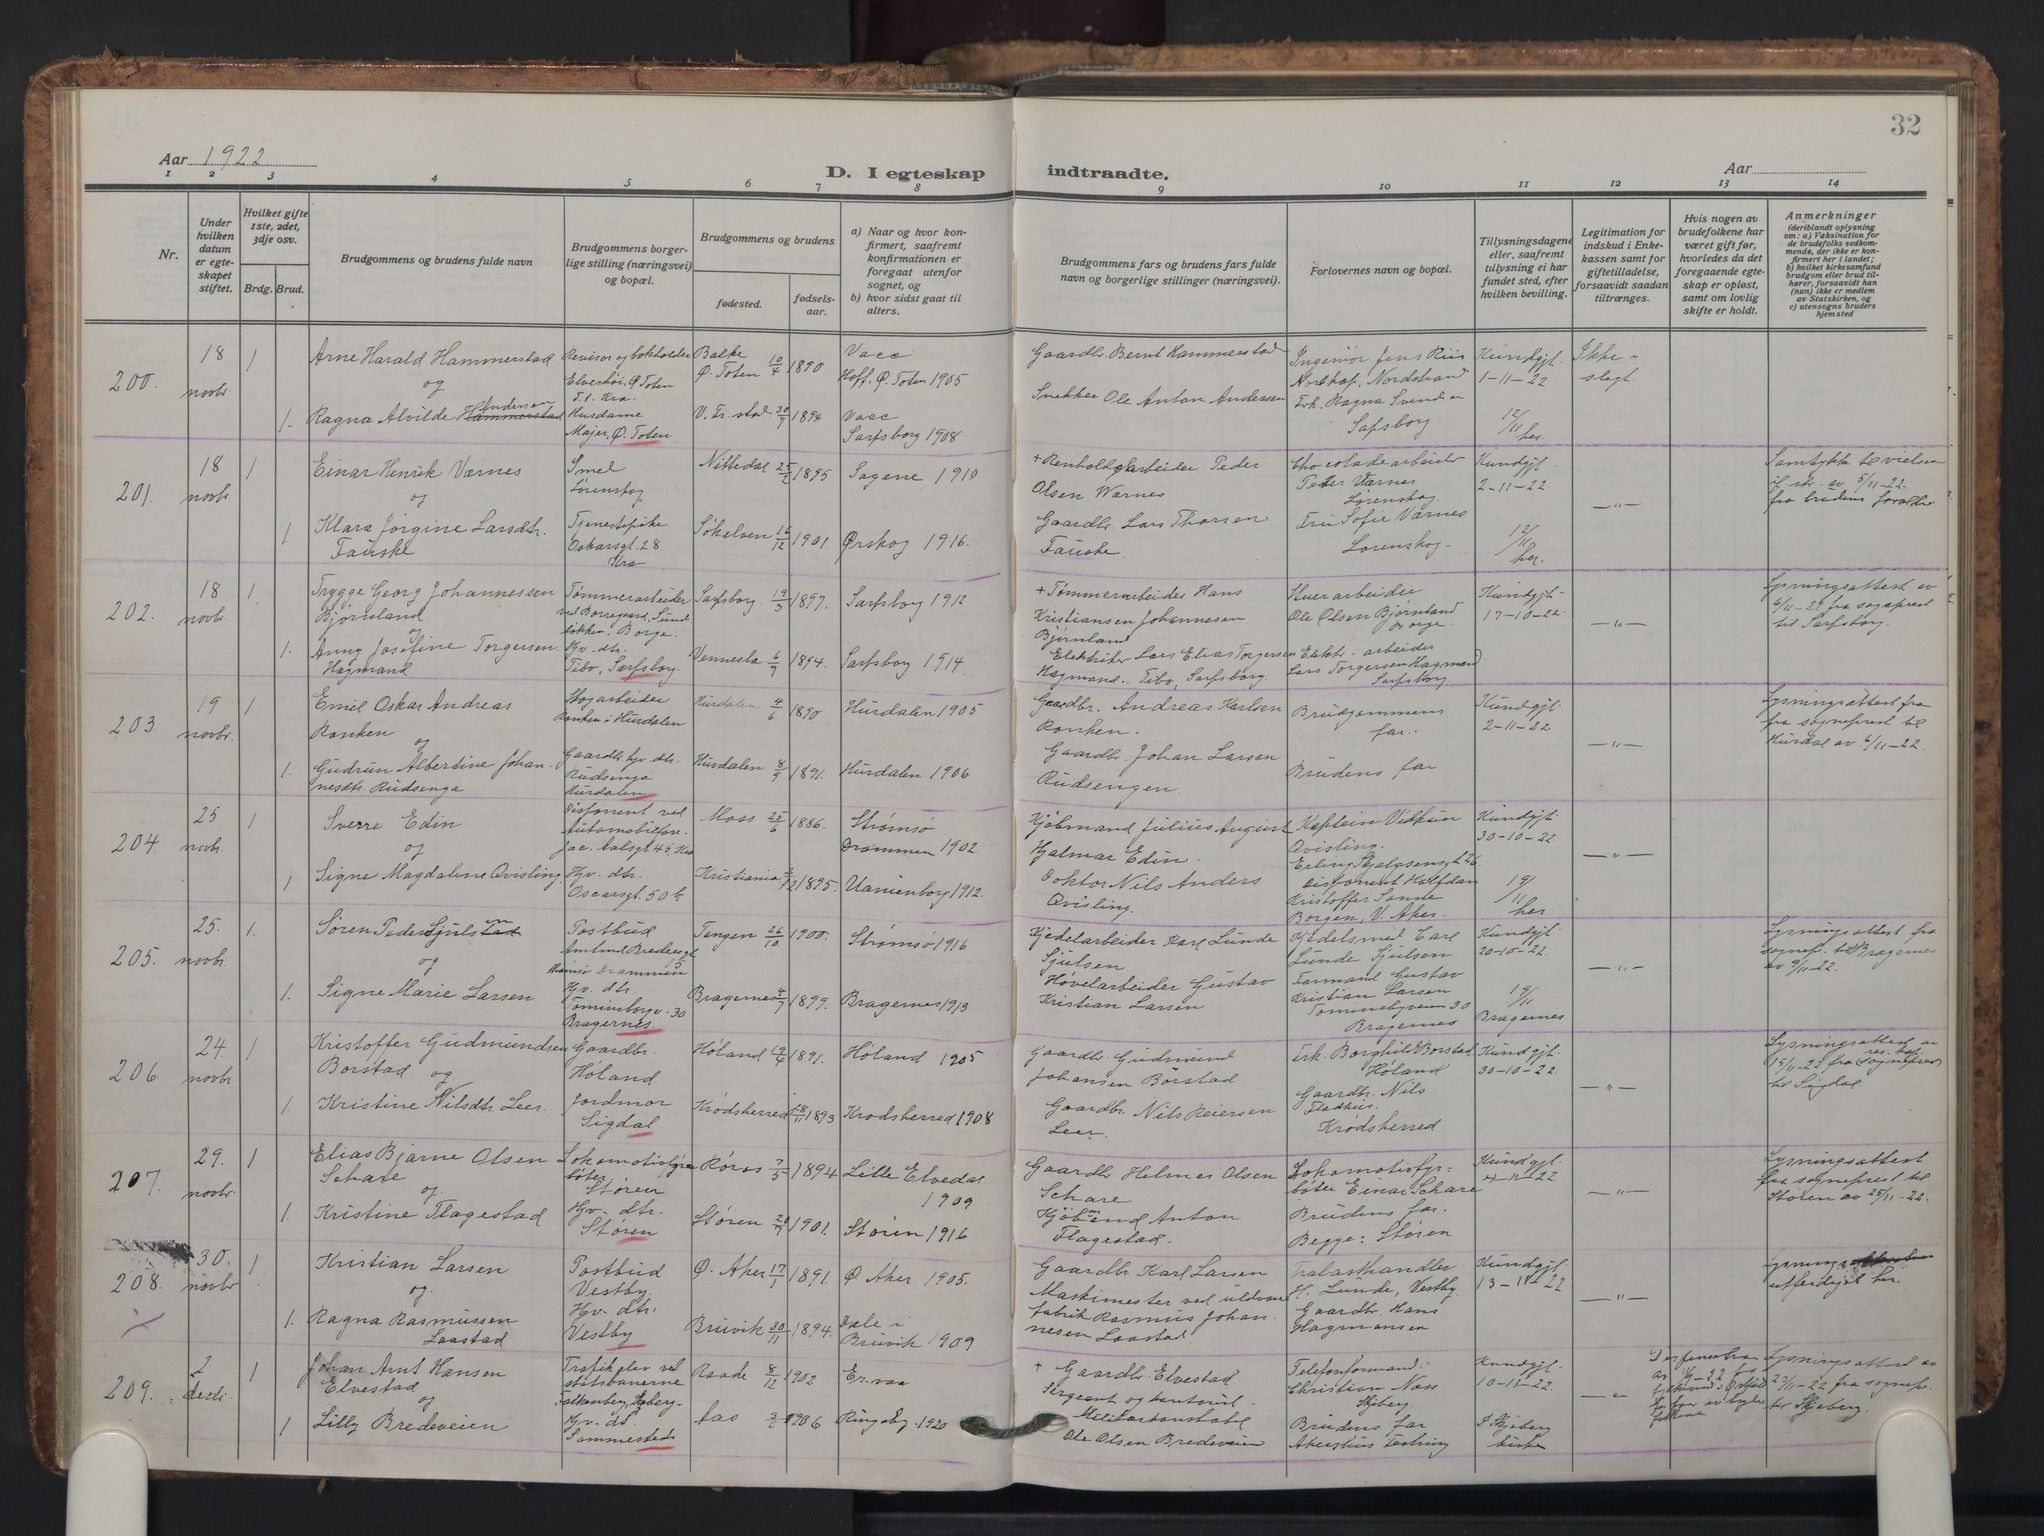 32
Aar 1922
D. I egteskap indtraadte.
Aar
1 2 3 4 5 6 7 8 9 10 11 12 13 14
Nr.
Under hvilken datum er egteskapet stiftet.
Hvilket gifte 1ste, 2det, 3dje osv.
Brdg. Brud.
Brudgommens og brudens fulde navn
Brudgommens borgerlige stilling (næringsvei) og bopæl.
Brudgommens og brudens
fødested.
fødselsaar.
a) Naar og hvor konfirmert, saafremt konfirmationen er foregaat utenfor sognet, og
b) hvor sidst gaat til alters.
Brudgommens fars og brudens fars fulde navn og borgerlige stillinger (næringsvei).
Forlovernes navn og bopæl.
Tillysningsdagene eller, saafremt tillysning ei har fundet sted, efter hvilken bevilling.
Legitimation for indskud i Enkekassen samt for giftetilladelse, forsaavidt saadan tiltrænges.
Hvis nogen av brudefolkene har været gift før, hvorledes da det foregaaende egteskap er opløst, samt om lovlig skifte er holdt.
Anmerkninger (deriblandt oplysning om: a) Vaksination for de brudefolks vedkommende, der ikke er konfirmert her i landet; b) hvilket kirkesamfund brudgom eller brud tilhører, forsaavidt han (hun) ikke er medlem av Statskirken, og c) utensogns bruders hjemsted
200. 18 novbr. 1
Arne Harald Hammerstad
og
1. Ragna Alvilde Hammerstad Andersen
Revisor og bokholder
Elverhøi, Ø. Toten
Husdame
Majer, Ø. Toten
Balke Ø. Toten 10/4 1890
V. Fr. stad 30/9 1894
Vacc
Hoff, Ø. Toten 1905
Vacc
Sarpsborg 1908
Gaardbr. Bernt Hammerstad
Snekker Ole Anton Andersen
Ingeniør Jens Riis
Nordstrand
Frk. Ragna Svendsen
Sapsborg
Kundgjt. 1-11-22
12/11 her
Ikke i slegt.
201. 18 novbr. 1
Einar Henrik Værnes
og
1 Klara Jørgine Larsdtr. Fauske
Smed
Lørenskog
Tjenestepike
Oskarsgt. 28
Kra
Nittedal 25/2 1895
Søkelven 16/12 1901
Sagene 1910
Ørskog 1916.
+ Renholdsarbeider Peder
Olsen Wærnes
Gaardbr. Lars Thorsen
Fauske.
Chocoladearbeider
Peder Værnes
Lørenskog.
Fru Sofie Værnes
Lørenskog
Kundgjt. 2-11-22
12/11 her.
—"—
Samtykke til vielsen
if. skr. av 5/11-22
fra brudens forældre
202. 18 novbr. 1
Trygge Georg Johannessen
Bjørnland
og
1. Anny Josefine Torgersen
Hagmand
Tømmerarbeider
ved Borregaard, Sund
løkken, Borge.
Hv. dtr.
Tibo, Sarpsborg
Sarpsborg 19/3 1897.
Vennesla 6/9 1894.
Sarpsborg 1912
Sarpsborg 1914
+ Tømmerarbeider Hans
Kristiansen Johannesen
Bjørnland
Elektriker Lars Elias Torgersen
Hagmand. Tibo, Sarpsborg.
Stuerarbeider
Ole Olsen Bjørnland
Borge.
Elektr.-arbeider
Lars Torgersen Hagmand
Sarpsborg
Kundgjt. 17-10-22
—"—
Lysningsattest av
6/11-22 fra sogneprest
til Sarpsborg.
203. 19 novbr. 1
Emil Oskar Andreas
Ronken
og
1. Gudrun Albertine Johan-
nesdtr. Rudsenga
Skogarbeider
Ronken i Hurdalen
Gaardbr. hjv. dtr.
Rudsenga
Hurdalen
Hurdalen 4/6 1890
Hurdalen 8/9 1891.
Hurdalen 1905
Hurdalen 1906
Gaardbr. Andreas Karlsen
Ronken.
Gaardbr. Johan Larsen
Rudsengen.
Brudgommens
far.
Brudens far
Kundgjt. 2-11-22
—"—
Lysningsattest fra
fra sogneprest til
Hurdal av 6/11-22.
204. 25 novbr. 1
Sverre Edin
og
1. Signe Magdalene Qvisling
Disponent ved
Automobilfor.
Hjv. dtr.
Oscarsgt. 50 b
Moss 23/6 1886.
Kristiania 1895.
Strømsø
Drammen 1902
Uranienborg 1912.
Kjøbmand Julius August
Hjalmar Edin.
Doktor Nils Anders
Qvisling.
Kaptein Vidkun
Qvisling.
Erling Skjalgsensgt 26.
Disponent Halfdan
Kristoffer Sande
Borgen, V. Aker.
Kundgjt. 30-10-22
19/11 her
—"—
205. 25. novbr. 1.
Søren Peder Sjulstad
og
1. Signe Marie Larsen
Postbud
Amtmd Bredesgt 15
Drammen
Hjv. dtr.
30
Bragernes.
Tangen 26/10 1900.
Bragernes 4/9 1899.
Strømsø 1916
Bragernes 1913
Kjedelarbeider Karl Lunde
Sjulsen
Høvelarbeider Gustav
Kristian Larsen
Kjedelsmed Carl
Lunde Sjulsen
Formand Gustav
Kristian Larsen
30
Bragernes
Kundgjt. 20-10-22
19/11 Bragernes
—"—
Lysningsattest fra
sognepr. til Bragernes
av 9/11-22.
206 24. novbr 1
Kristoffer Gudmundsen
Borstad og
1. Kristine Nilsdtr. Leer.
Gaardbr.
Høland
Jordmor
Sigdal
Høland 19/4 1891.
Krødsherred 18/11 1893
Høland 1905
Krødsherred 1908
Gaardbr. Gudmund
Johansen Børstad
Gaardbr. Nils Reiersen
Leer.
Frk. Borghild Borstad
Høland
Gaardbr. Nils
Fladhus.
Krødsherred
Kundgjt. 30-10-22
—"—
Lysningsattest av
15/11-22 fra (res. kap.) sogneprest
til Sigdal
207. 29. novbr 1
Elias Bjarne Olsen
Schare
og
1. Kristine Flagestad
Lokomotivfyr-
bøter
Støren
Hjv. dtr.
Støren
Røros 7/5 1894
Støren 20/9 1901.
Lille Elvedal
1909
Støren 1916
Gaardbr Helmer Olsen
Schare
Kjøbmand Anton
Flagestad.
Lokomotivfyr-
bøter Einar Schare
Brudens far.
Begge: Støren
Kundgjt. 4-11-22
—"—
Lysningsattest
fra sogneprest til
Støren av 25/11-22.
208. 30. novbr 1
Kristian Larsen
og.
1. Ragna Rasmussen
Laastad
Postbud
Vestby.
Hv. dtr.
Vestby
Ø. Aker 17/1 1891.
Bruvik 30/11 1894.
Ø Aker 1905.
Dale i
Bruvik 1909
Gaardbr. Karl Larsen
Maskinmester ved uldvare
fabrik Rasmus Johan-
nesen Laastad.
Trælasthandler
H. Lunde, Vestby.
Gaardbr. Hans
Hagmansen
Kundgjt. 13-11-22
—"—
Lysnings
utferdiget her.
209. 2 decbr. 1
Johan Arnt Hansen
Elvestad
og
1 Lilly Bredeveien
Trafikelev ved
statsbanerne
Falkenberg, Skjeberg
Hjv. dt.
Sammesteds
Raade 8/12 1902
Aas 1906
Er. vaa
Ringsby 1920
+ Gaardbr. Elvestad
Sergeant og
Ole Olsen Bredeveien
Telefonformand
Christian Nass
Skjeberg.
Brudens far
Akershus Festning
Kundgjt. 10-11-22.
I Skjeberg
kirke
—"—
Lysningsattest av
23/11-22 fra sognepr.
til Skjeberg.